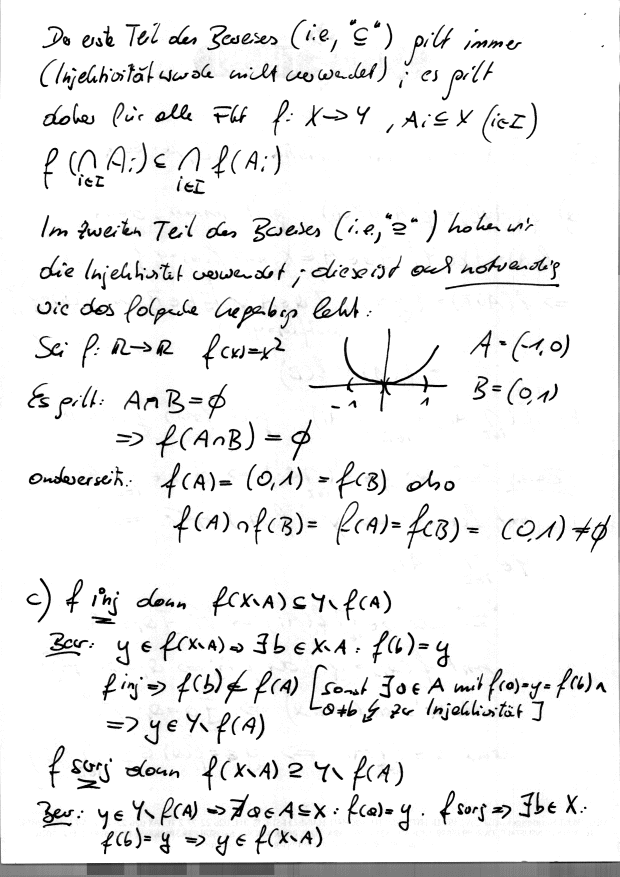 Der erste Teil des Beweises (i.e., "⊆") gilt immer
(Injektivität wurde nicht verwendet); es gilt
daher für alle Fkt f: X→Y, Ai ⊆ X (i∈I)
f(⋂_{i∈I} Ai) ⊆ ⋂_{i∈I} f(Ai)
Im zweiten Teil des Beweises (i.e., "⊇") haben wir
die Injektivität verwendet; diese ist auch notwendig
wie das folgende Gegenbsp lehrt:
Sei f: ℝ→ℝ f(x)=x² A=(-1,0)
-1 1 B=(0,1)
Es gilt: A∩B=∅
⇒ f(A∩B) = ∅
andererseits: f(A) = (0,1) = f(B) also
f(A)∩f(B) = f(A) = f(B) = (0,1) ≠ ∅
c) f inj dann f(X∖A) ⊆ Y∖f(A)
Bew: y ∈ f(X∖A) ⇒ ∃b ∈ X∖A: f(b)=y
f inj ⇒ f(b) ∉ f(A) [sonst ∃a∈A mit f(a)=y=f(b) ∧
a≠b ↯ zur Injektivität]
⇒ y ∈ Y∖f(A)
f surj dann f(X∖A) ⊇ Y∖f(A)
Bew: y∈Y∖f(A) ⇒ ∄a∈A⊆X: f(a)=y. f surj ⇒ ∃b∈X:
f(b)=y ⇒ y∈f(X∖A)